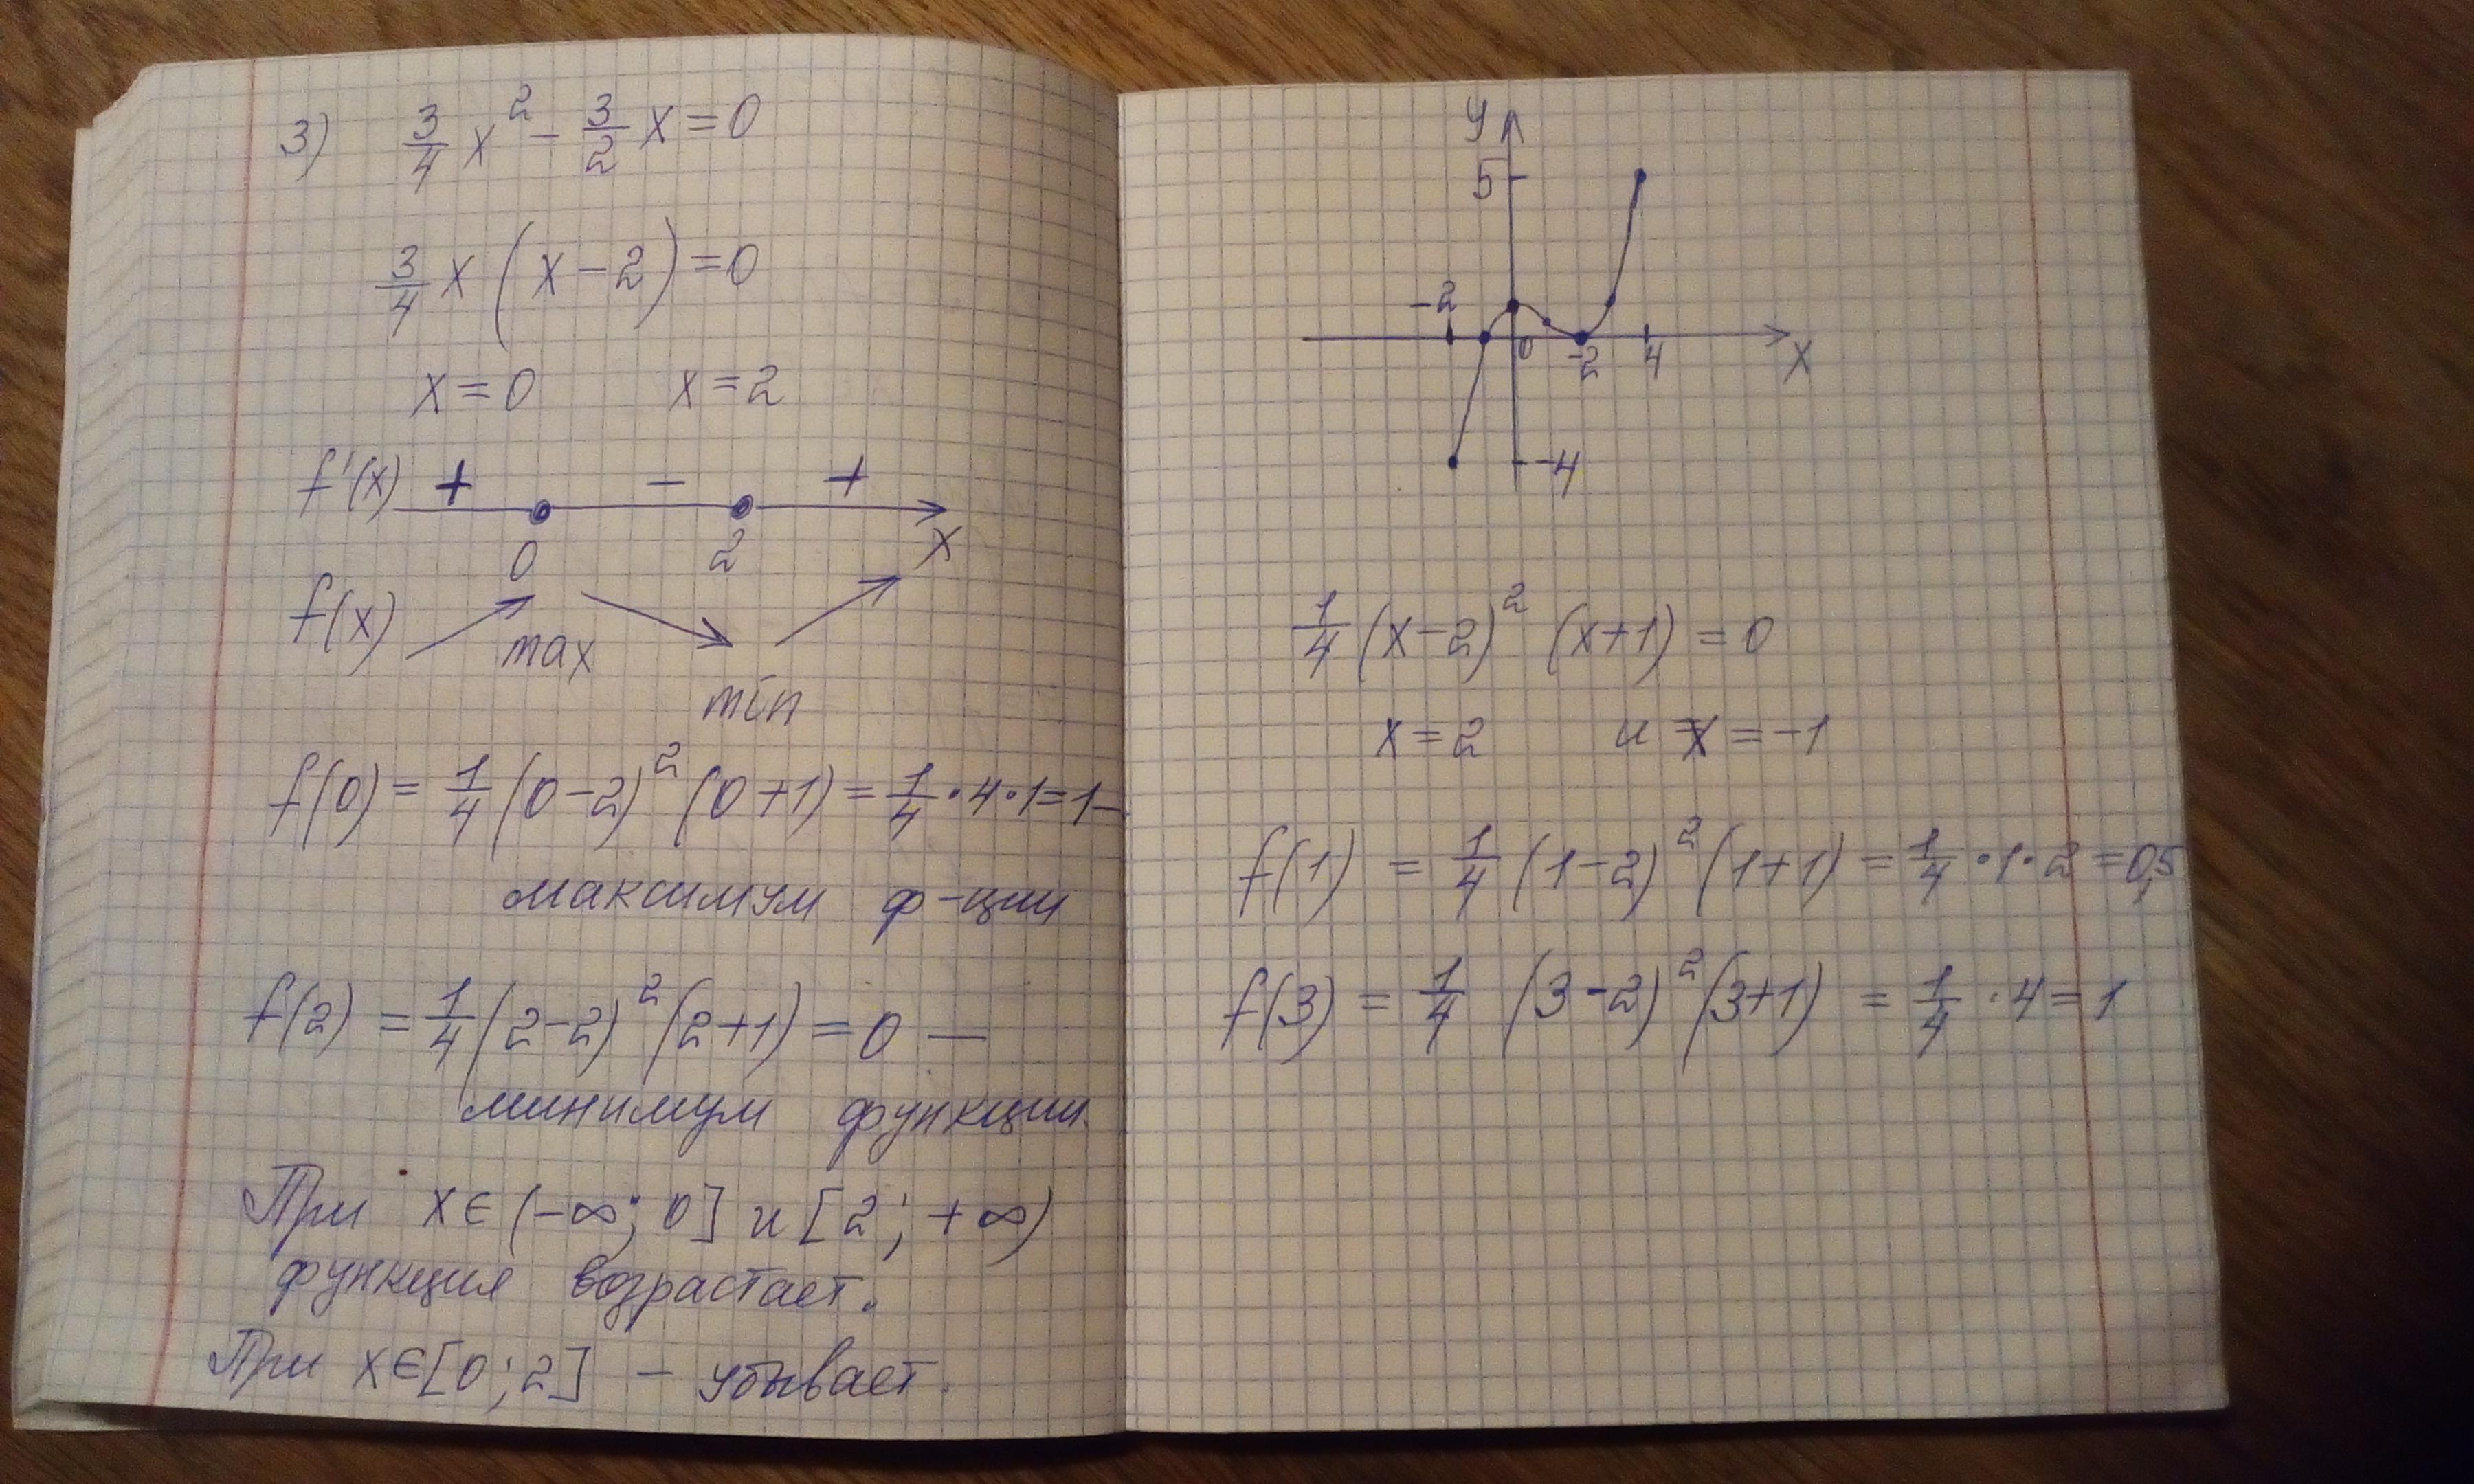 3) 3/4 x² - 3/2 x = 0
3/4 x (x - 2) = 0
x = 0 x = 2
f'(x) + - +
0 2 x
f(x) max min
f(0) = 1/4 (0 - 2)² (0 + 1) = 1/4 · 4 · 1 = 1 —
максимум ф-ции
f(2) = 1/4 (2 - 2)² (2 + 1) = 0 —
минимум функции.
При x ∈ (-∞; 0] и [2; +∞)
функция возрастает.
При x ∈ [0; 2] - убывает.
y
5
-2
0 -2 4 x
-4
1/4 (x - 2)² (x + 1) = 0
x = 2 и x = -1
f(1) = 1/4 (1 - 2)² (1 + 1) = 1/4 · 1 · 2 = 0,5
f(3) = 1/4 (3 - 2)² (3 + 1) = 1/4 · 4 = 1